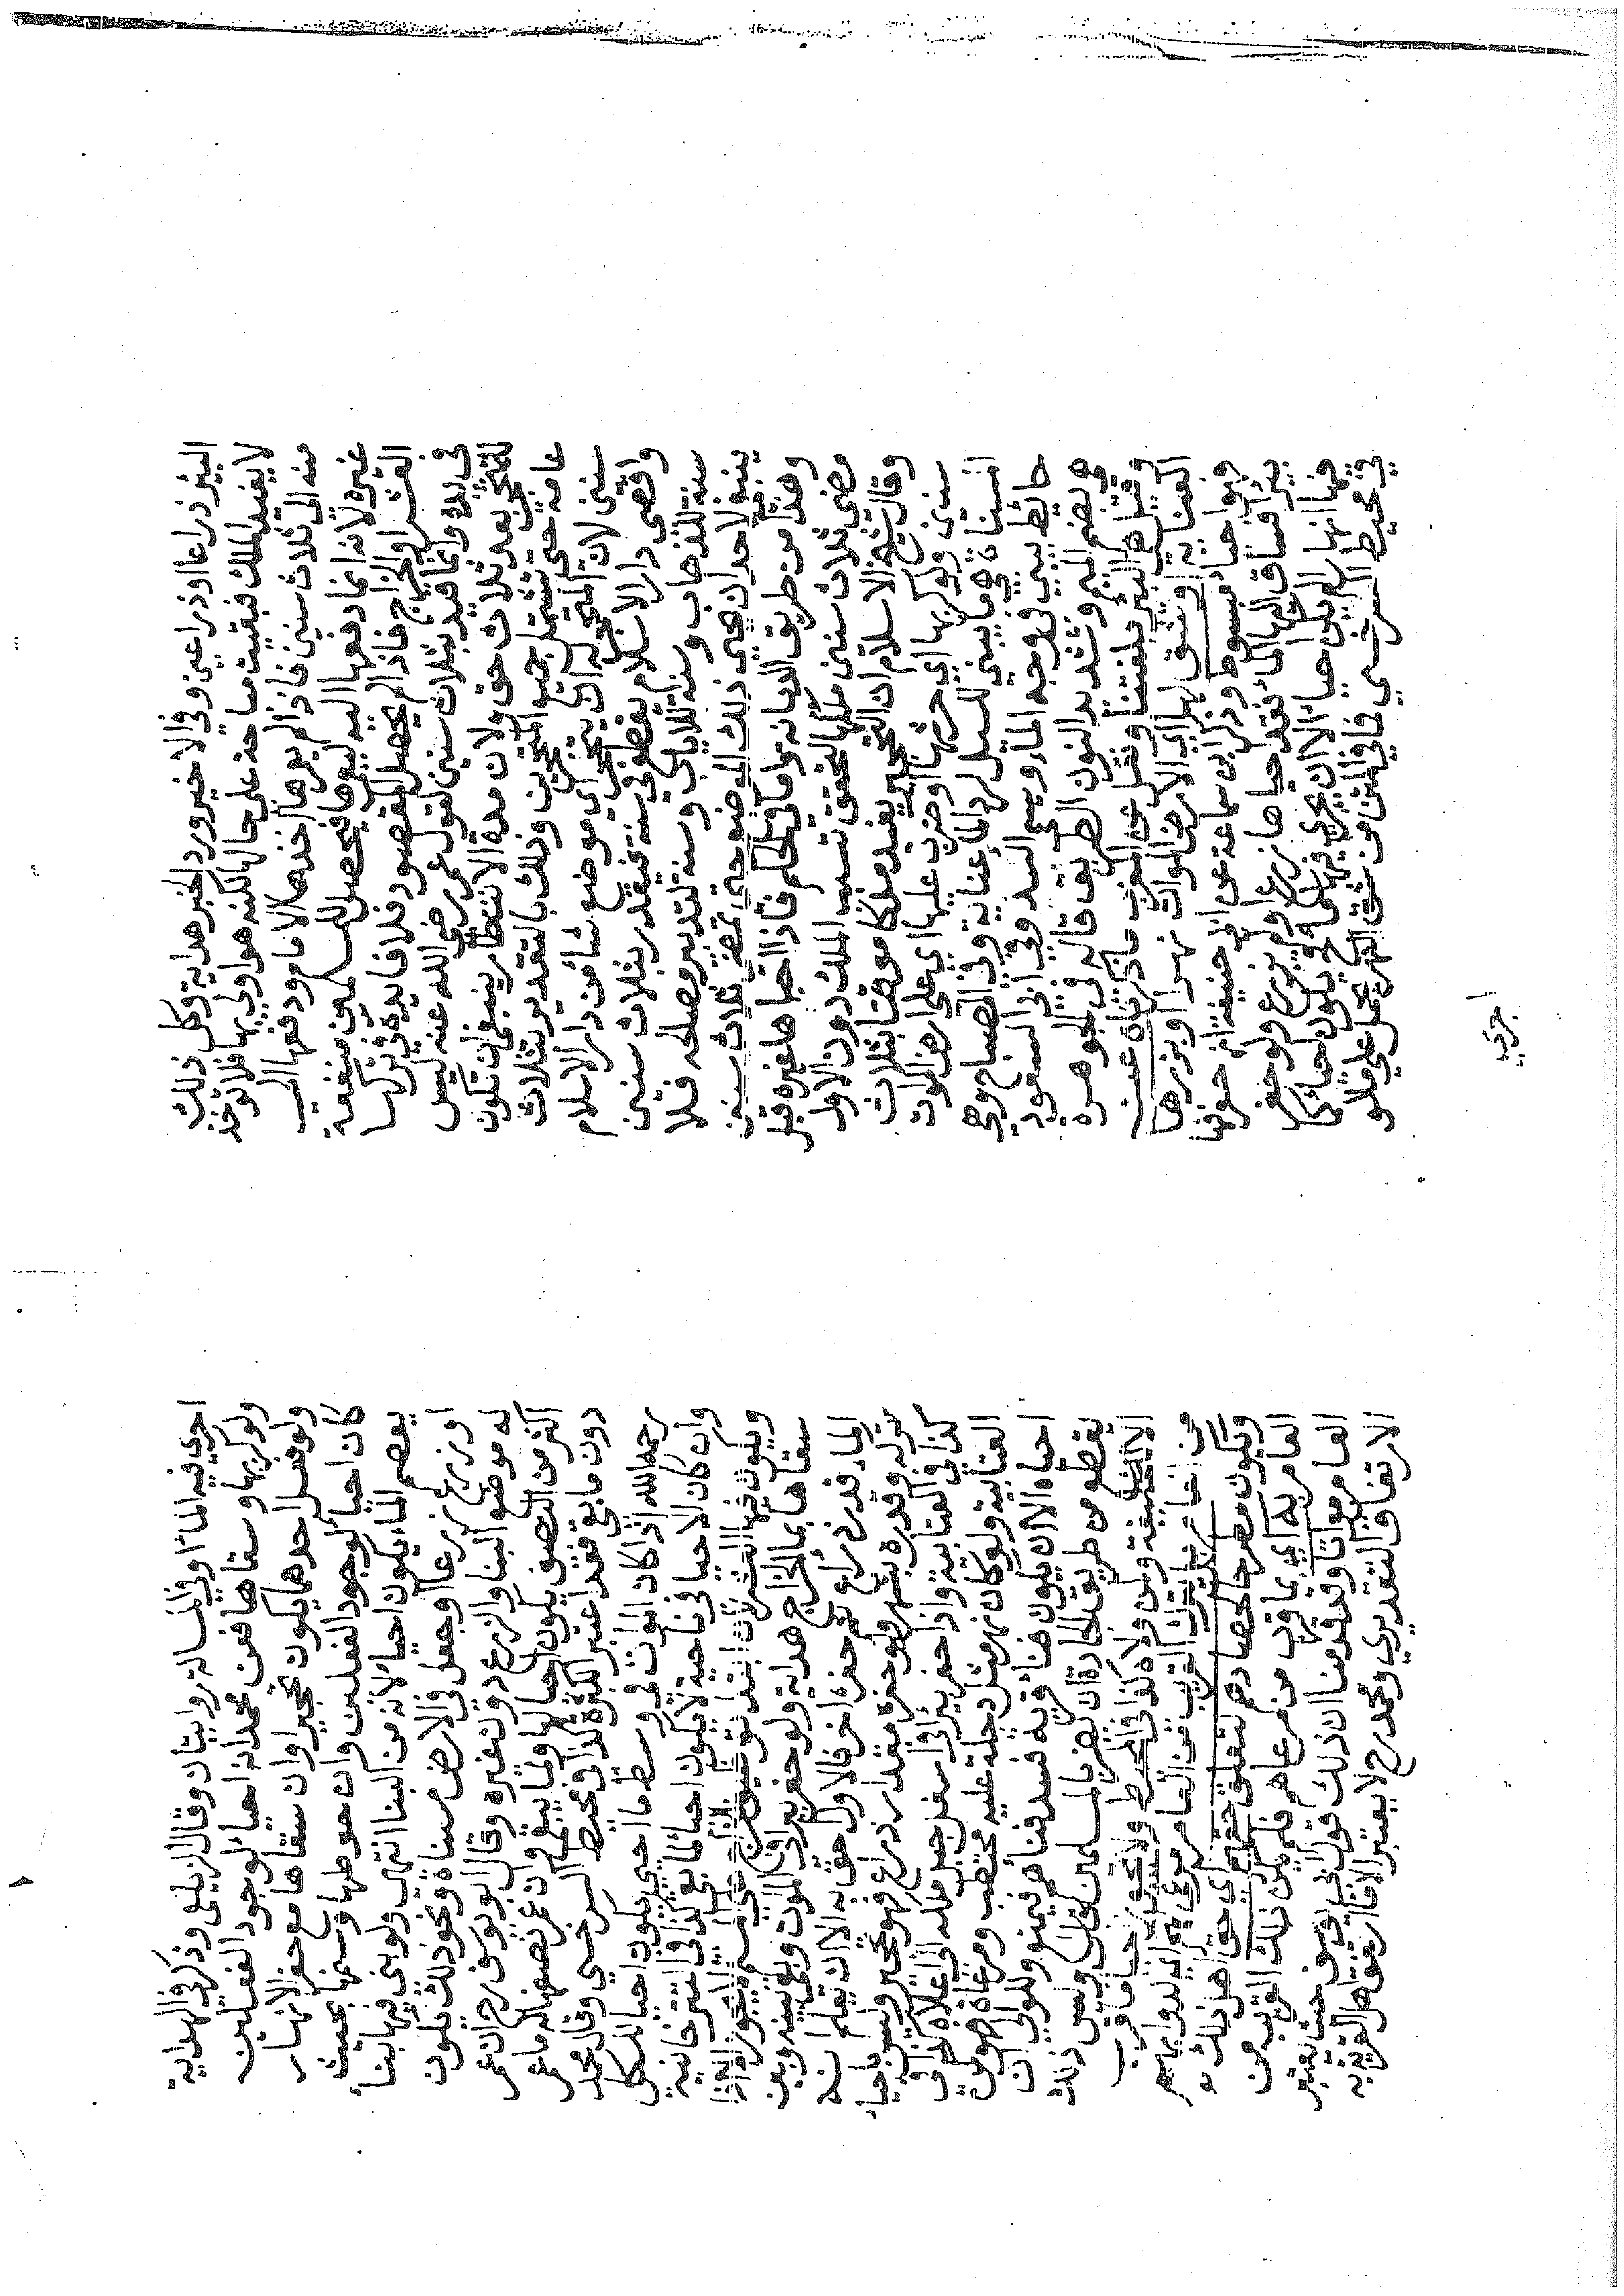 البئر ذراعا او ذراعين وفي الاخير ورد الخبر هداية وكل ذلك
لا يفيد الملك فبقيت مباحة على حالها لكنه هو اولى بها فلا تؤخذ
منه الى ثلاث سنين فاذا لم يعمرها اخذها الامام ودفعها الى
غيره لانه انما دفعها اليه ليعمرها فيحصل للمسلمين منفعة
العشر او الخراج فاذا لم يحصل المقصود فلا فايدة في تركها
في يده وانما قيد بثلاث سنين لقول عمر رضي الله عنه ليس
للمتحجر بعد ثلاث حق ولان مدة الانتظار ينبغي ان تكون
عامة حتى تشتمل جميع المتحجرين وذلك بالتقدير بثلاث
سنين لان المتحجر له ان يتحجر اي موضع شاء من دار الاسلام
واقصى دار الاسلام يقطع في سنة فيقدر بثلاث سنين
سنة للذهاب وسنة للاياب وسنة لتدبير مصالحه فلا
ينبغي لاحد ان يحيي ذلك الموضع حتى تمضي ثلاث سنين
وهذا من طريق الديانة واما في الحكم فاذا احياها غيره قبل
مضي ثلاث سنين ملكها لتحقق سبب الملك دون الاول
وقال شيخ الاسلام ان التحجير يفيد ملكا موقتا بثلاث
سنين ولو كربها اي حرثها او ضرب عليها اي على ارض الموات
المسناة هي ما يبنى للسيل ليرد الماء عناية وفي المصباح وهي
حائط يبنى في وجه الماء ويسمى السد وفي ابي السعود
هي بضم الميم وتشديد النون الطريق قاله في الجوهرة
وقيل هي البئر بلغتنا ونقل عن المغرب ما ذكرناه عن
العناية او شق لها اي لارض الموات نهرا او بذرها
فهو احياء مبسوط وذكر ابن سماعة عن ابي حنيفة ان حفر فيها
بيرا فساق اليها الماء فقد احياها زرع او لم يزرع ولو حفر
فيها انهارا لم يكن احياء الا ان يجري فيها ماء فيكون احياء كما
في محيط السرخسي فما في المتن من شق النهر يحمل على ما لو
اجري
اجري فيه الماء او في المسالة روايتان وقال الزيلعي وذكر في الهداية
ولو كربها وسقاها فعن محمد انه احياء لوجود الفعلين
ولو فعل احدهما يكون تحجيرا وان سقاها مع حفر الانهار
كان احياء لوجود الفعلين وان حوطها وسنمها بحيث
يعصم الماء يكون احياء لانه من البنا انتهى ولو بنى فيها بناء
او زرع زرعا او جعل في الارض مسناة ونحو ذلك يكون
له موضع البنا والزرع دون غيره وقال ابو يوسف رح ان عمر
اكثر من النصف يكون احيا لها وفيما بقي وان عمر نصفها له ما عمر
دون ما بقي فقد اعتبر الكثرة كذا في محيط السرخسي وقال محمد
رحمه الله اذا كان الموات في وسط ما احيي يكون احيا للكل
وان كان الاحيا في ناحية لا يكون احيا لما بقي كذا في التترخانية
ويكون فيها العشر لان ابتداء توظيف
سقاها بماء الخراج هداية ولو حفر بيرا في الموات وبقي بينه وبين
الماء قدر ذراع ثم حفره اخر فالاول احق به الا ان يعلم انه
تركه وقدره بشهر ولو حفره مقدار ذراع فهو تحجير وليس باحياء
كذا في العتابية واذا حفر بيرا في اسفل جبل ملكه الى اعلاه كذا في
العتابية ولو كان نهر مثل دجلة عليه محتطب ومرعاة فهو من
احياه الا ان يكون فناء قرية فسد فناهم فيمنع وللوالي ان
يقطع من طريق الجادة ان لم يضر بالمسلمين
الا الخليفة ومن ولاه كذا في المحيط ولا يجوز احيا ما قرب
من العامر بل يترك القريب من العامر مرعى لهم اي لدوابهم
ويكون مطرحا لحصادهم لتعلق حقهم اي حق اهل ذلك
العامر به اي بما قرب من مرعاهم فلم يكن ذلك القريب من
العامر مواتا وقد قدمنا ان ذلك قول ابي يوسف حيث يعتبر
الارتفاق التقديري ومحمد رح لا يعتبر الا ارتفاق اهل القرية به